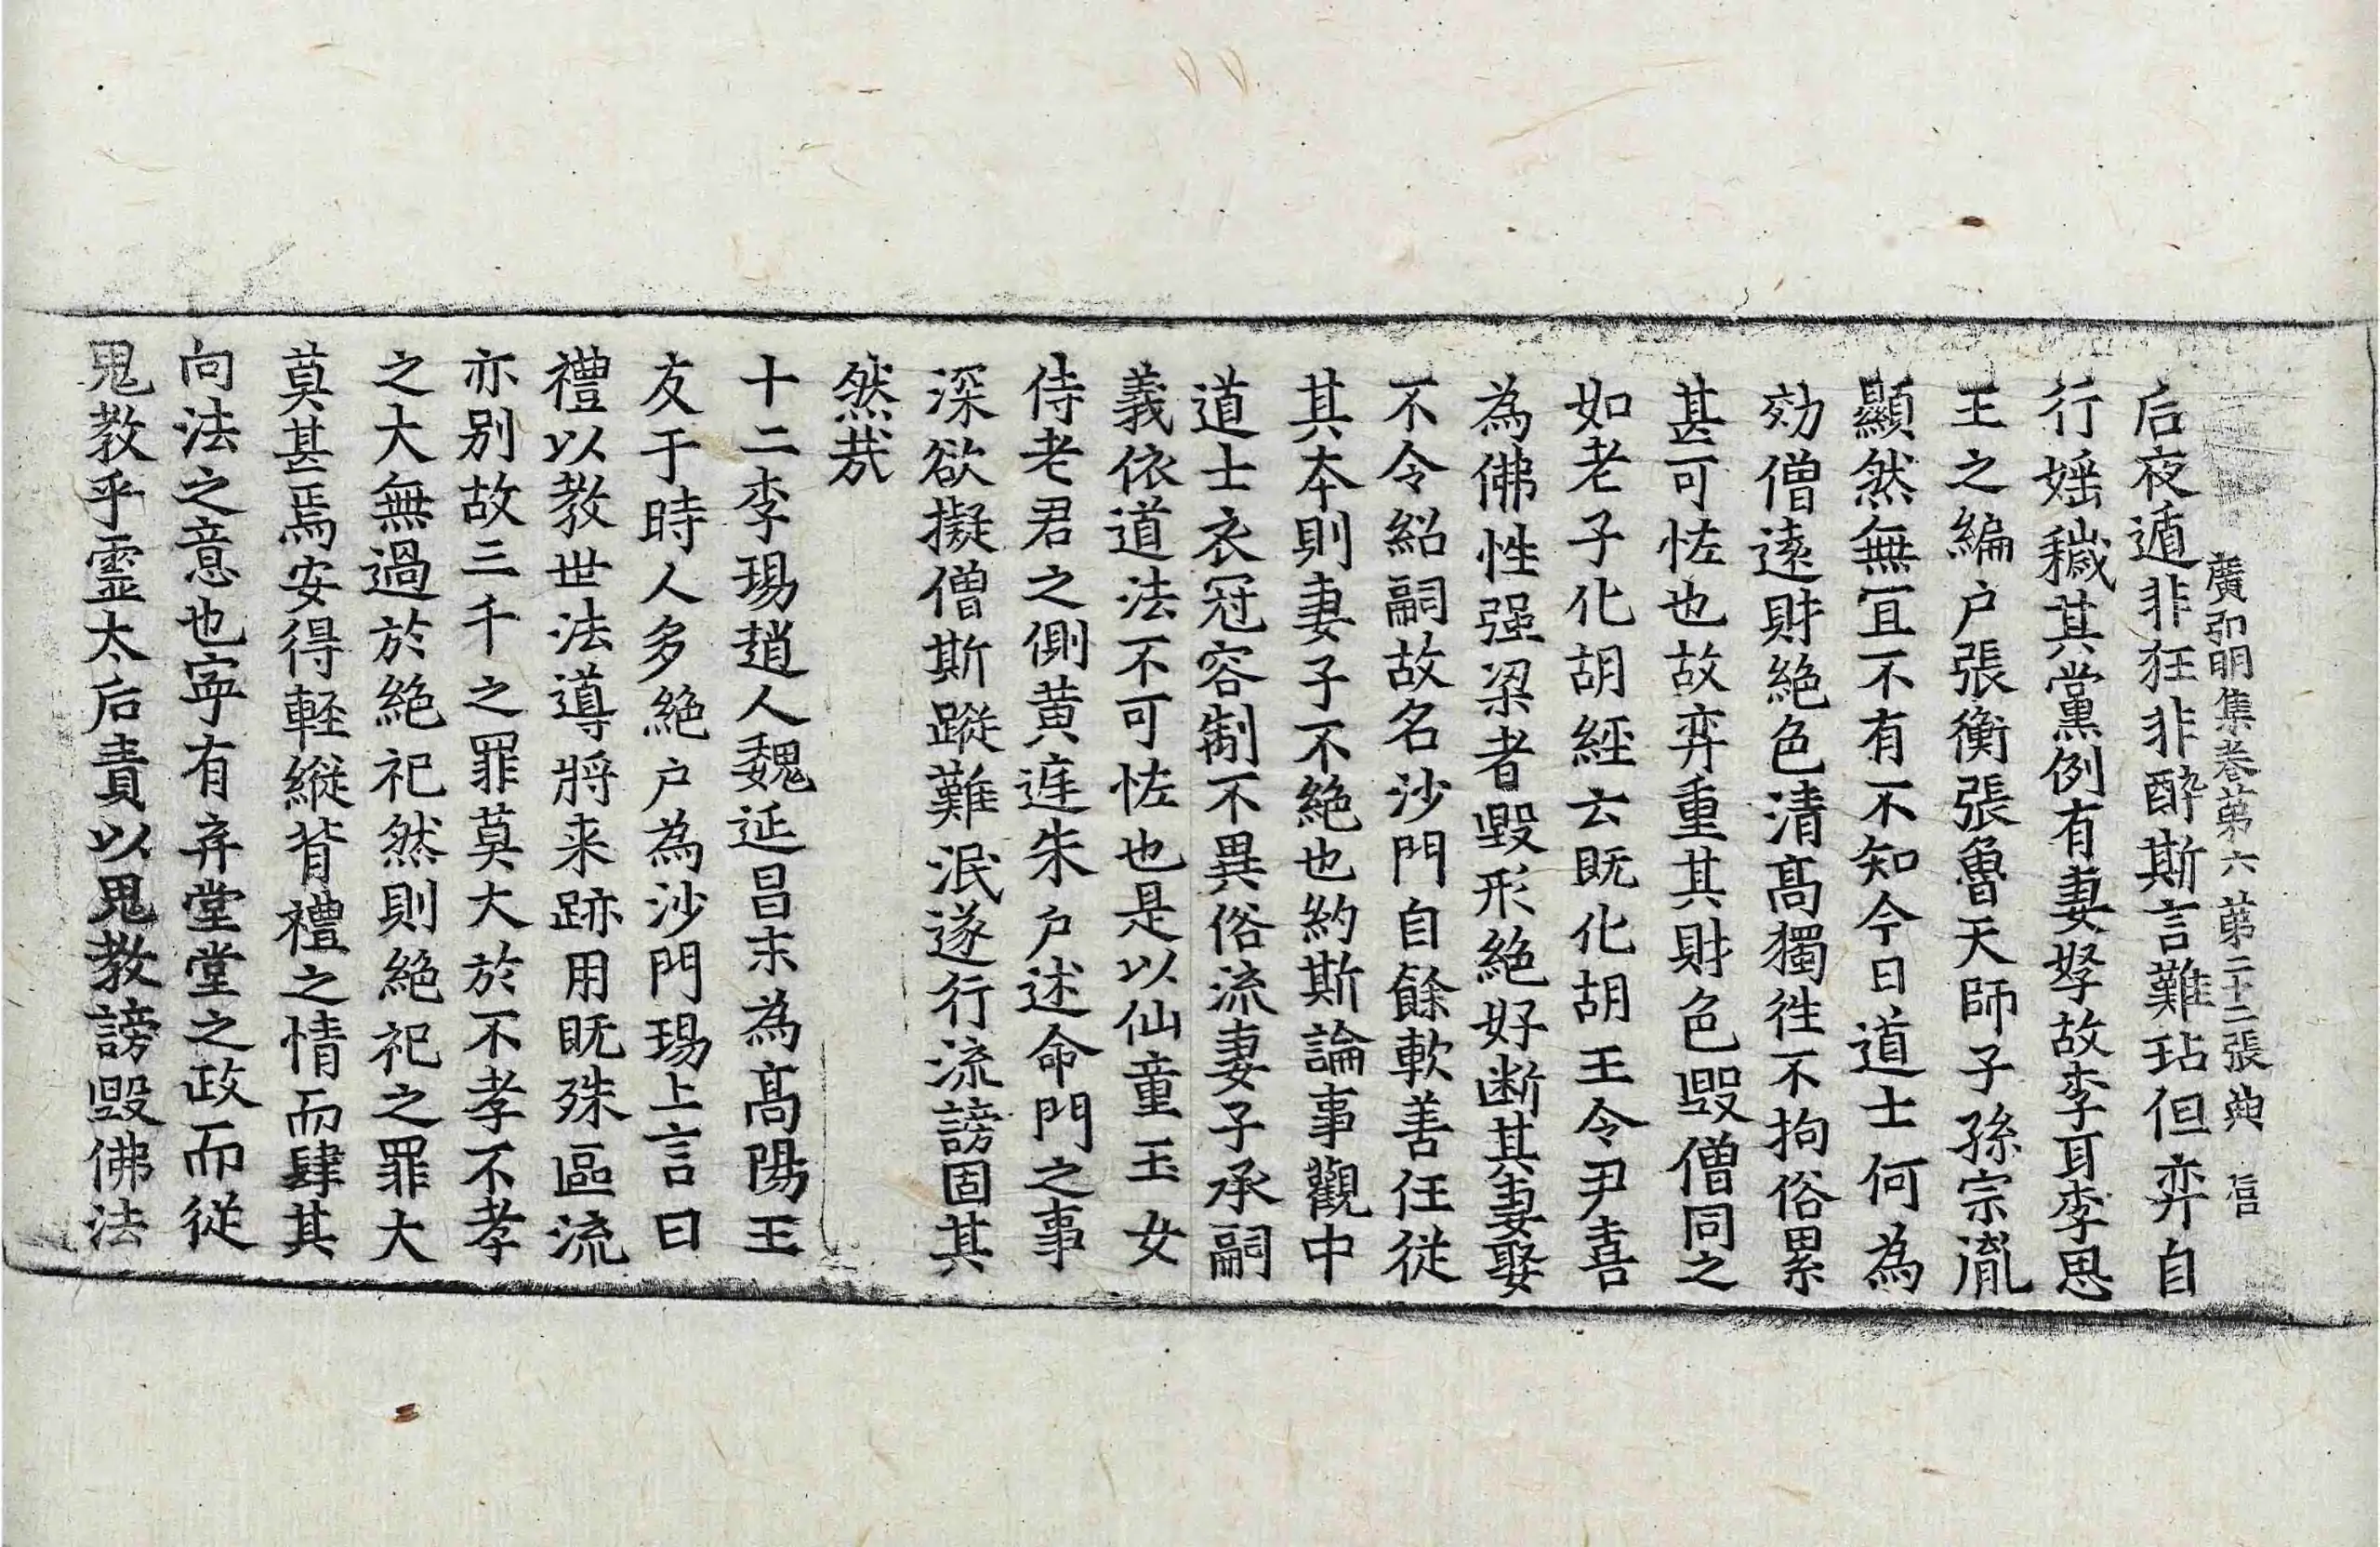 廣弘明集卷第六 第二十二張 典 信
后夜遁非狂非醉斯言難玷但弃自
行婬穢其黨例有妻孥故李耳李思
王之編户張衡張魯天師子孫宗胤
顯然無冝不有不知今日道士何為
効僧逺財絶色清髙獨徃不拘俗累
甚可怪也故弃重其財色毀僧同之
如老子化胡經云既化胡王令尹喜
為佛性强梁者毀形絶好断其妻娶
不令紹嗣故名沙門自餘軟善任從
其本則妻子不絶也約斯論事觀中
道士衣冠容制不異俗流妻子承嗣
義依道法不可怪也是以仙童玉女
侍老君之側黄庭朱户述命門之事
深欲擬僧斯蹤難泯遂行流謗固其
然哉
十二李瑒趙人魏延昌末為髙陽王
友于時人多絶户為沙門瑒上言曰
禮以教世法導將来跡用既殊區流
亦别故三千之罪莫大於不孝不孝
之大無過於絶祀然則絶祀之罪大
莫甚焉安得軽縦背禮之情而肆其
向法之意也寜有弃堂堂之政而從
鬼教乎霊太后責以鬼教謗毀佛法